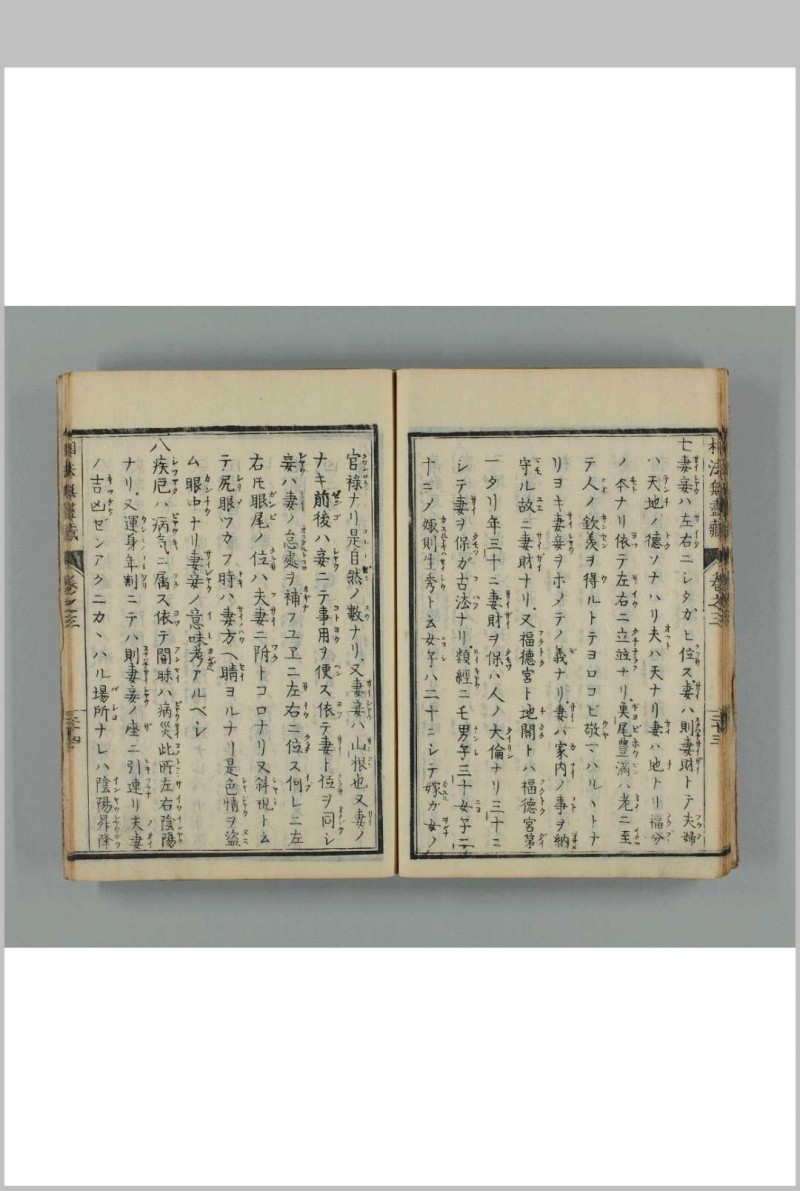 相法無盡藏 卷之三 三十三
七妻妾ハ左右ニシタガヒ位ス妻ハ則妻財トテ夫婦
ハ天地ノ德ソナハリ夫ハ天ナリ妻ハ地トリ福分
ノ本ナリ依テ左右ニ立並ナリ裏尾豊満ハ老ニ至
テ人ノ欽羨ヲ得ルトテヨロコビ敬マハルヽトナ
リヨキ妻妾ヲホメテノ義ナリ妻ハ家内ノ事ヲ納
守ル故ニ妻財ナリ又福德宮ト地閣トハ福德宮第
一タリ年三十ニ妻財ヲ保ハ人ノ大倫ナリ三十ニ
シテ妻ヲ保ガ古法ナリ類經ニモ男子三十女子二
十ニノ嫁則生秀ト云女子ハ二十ニシテ嫁カ女ノ
官禄ナリ是自然ノ數ナリ又妻妾ハ山根也又妻ノ
ナキ前後ハ妾ニテ事用ヲ便ス依テ妻ト位ヲ同シ
妾ハ妻ノ怠處ヲ補フユヱニ左右ニ位ス何レニ左
右氏眼尾ノ位ハ夫妻ニ附トコロナリ又斜視ト云
テ尻眼ツカフ時ハ妻方ヘ睛ヨルナリ是色情ヲ盜
ム眼中ナリ妻妾ノ意味考アルベシ
八疾厄ハ病气ニ属ス依テ闇昧ハ病災此所左右陰陽
ナリ又運身年割ニテハ則妻妾ノ座ニ引連リ夫妻
ノ吉凶ゼンアクニカヽハル場所ナレハ陰陽昇降
相法無盡藏 卷之三 三十四